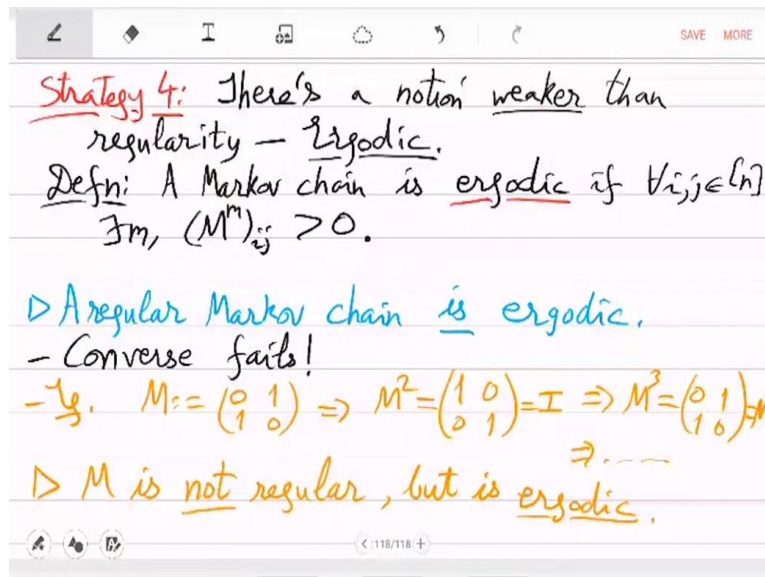 SAVE MORE
Strategy 4: There's a notion weaker than
regularity — Ergodic.
Defn: A Markov chain is ergodic if ∀i,j∈[n]
∃m, (M^m)_ij > 0.
▷ A regular Markov chain is ergodic.
- Converse fails!
- Eg. M := (0 1; 1 0) ⇒ M² = (1 0; 0 1) = I ⇒ M³ = (0 1; 1 0) = M
⇒ . ----
▷ M is not regular, but is ergodic.
< 118/118 +